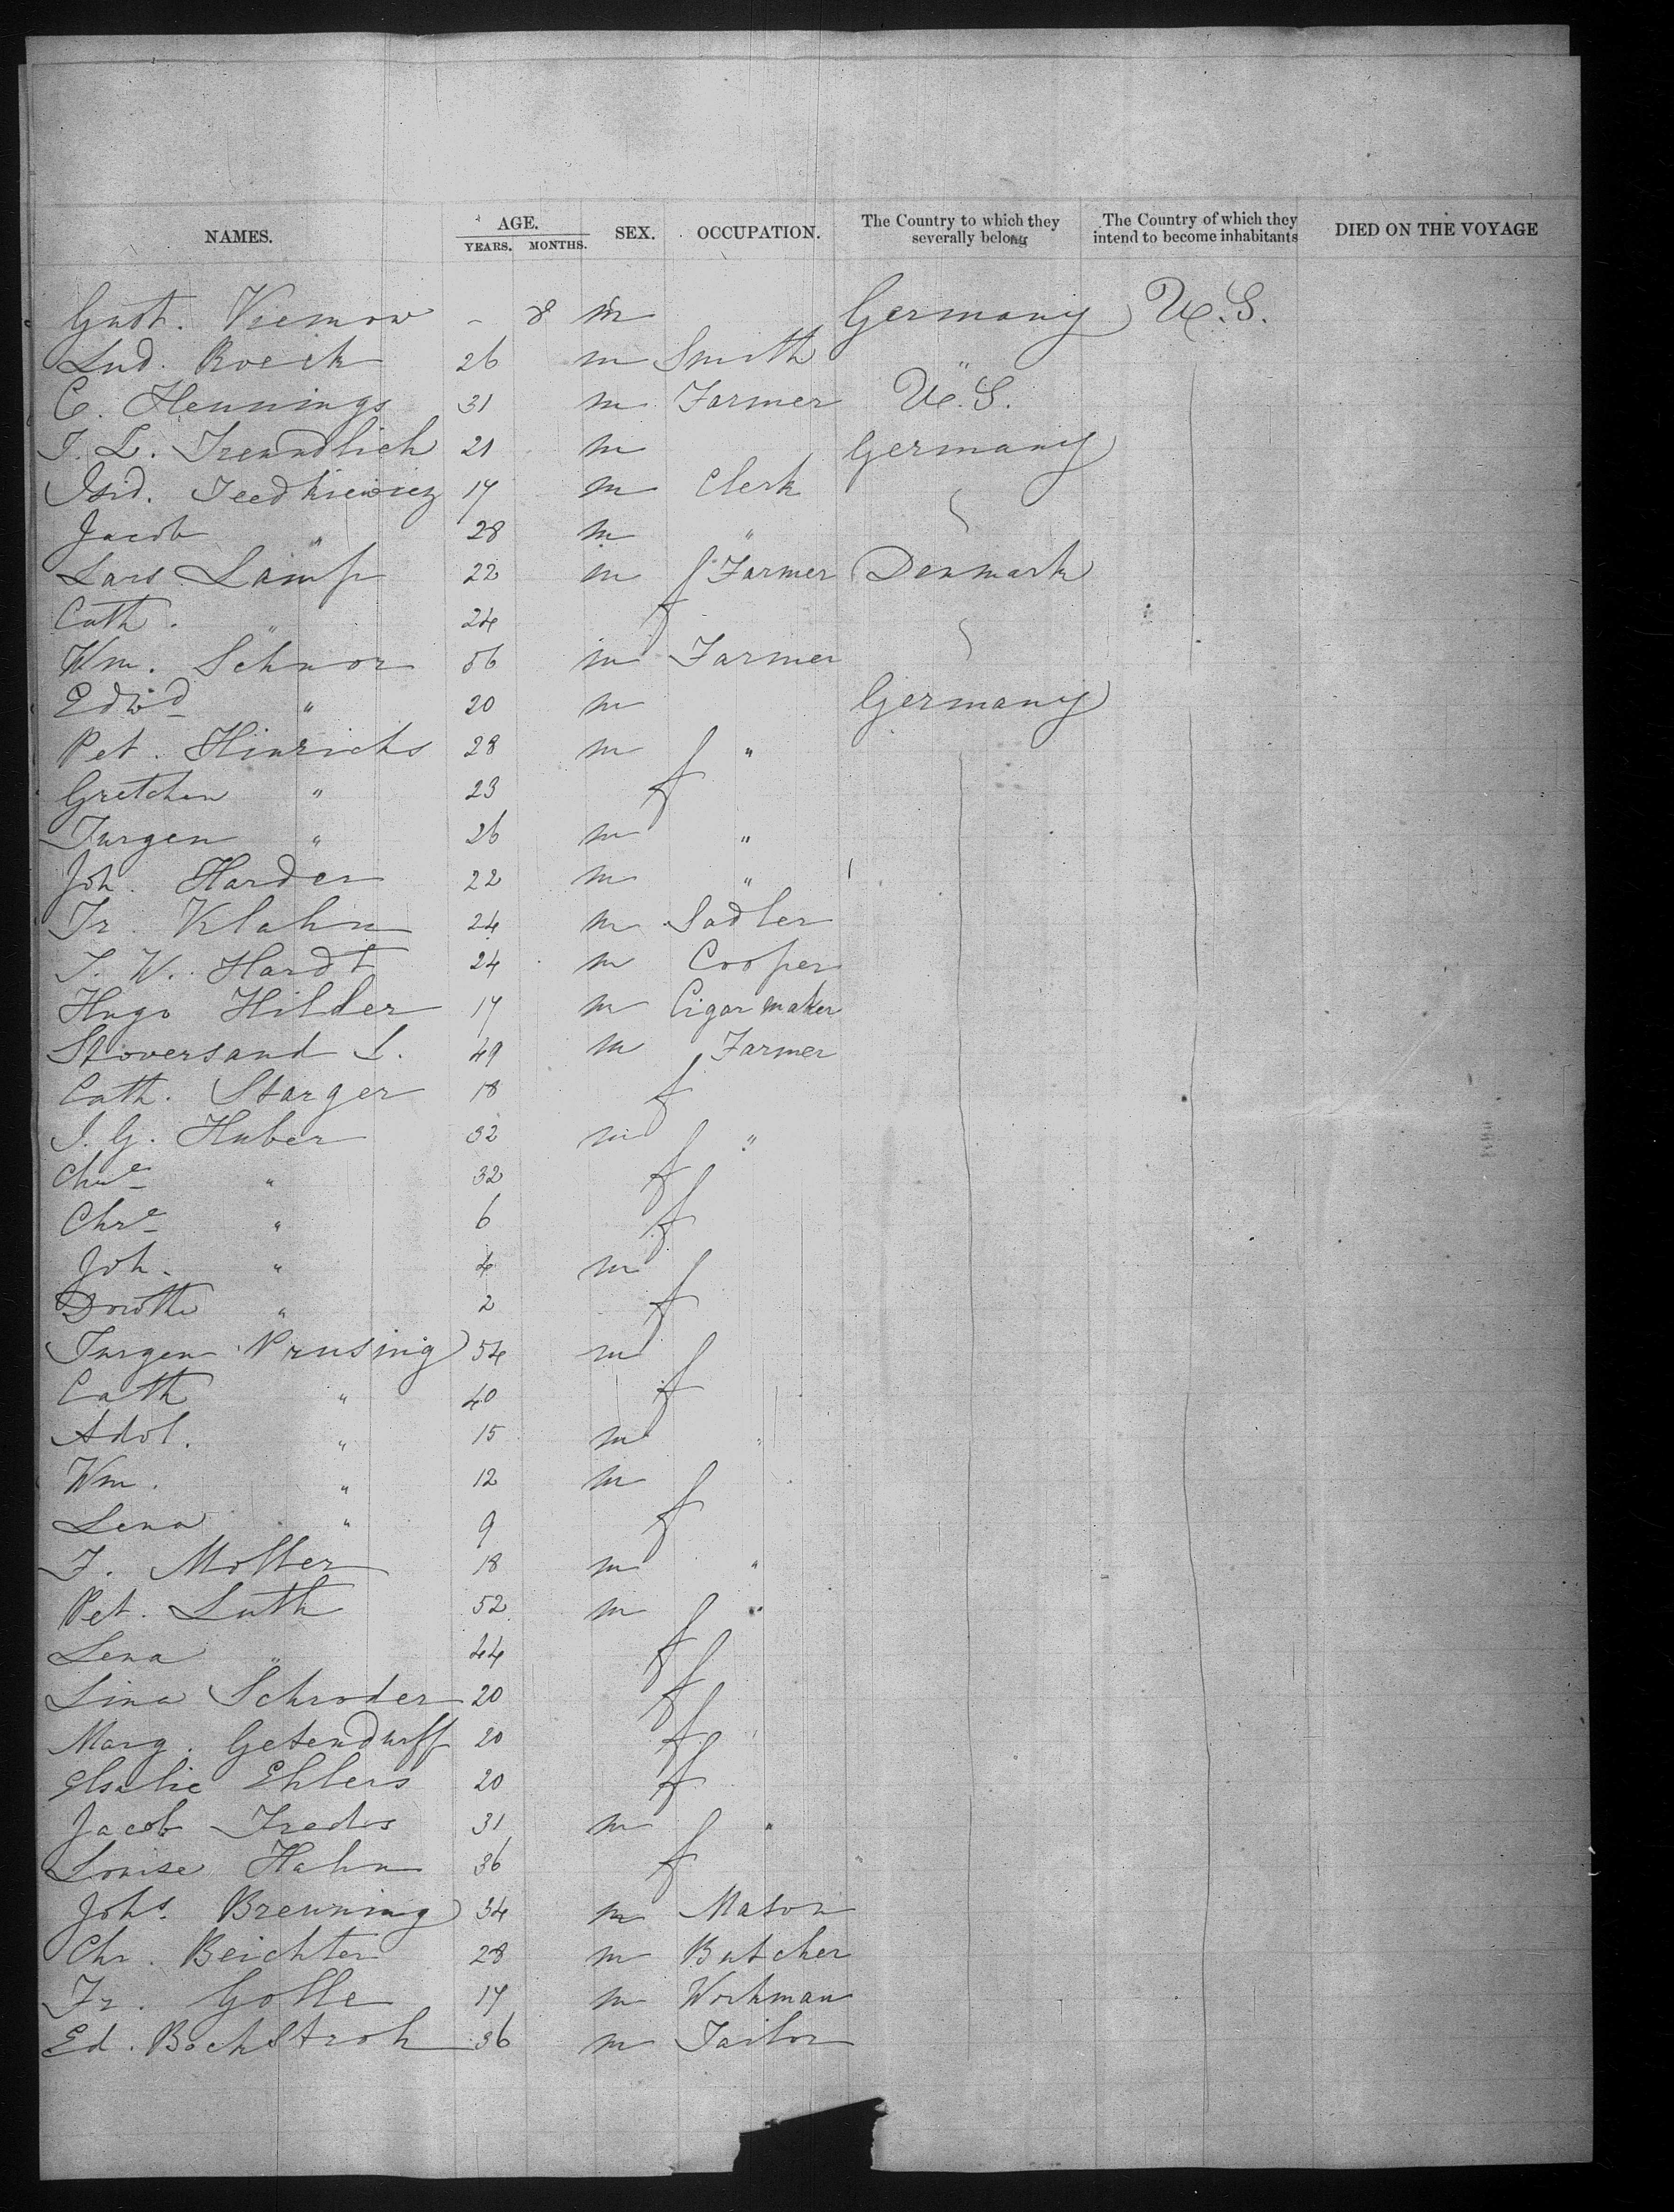 NAMES. AGE. YEARS. MONTHS. SEX. OCCUPATION. The Country to which they severally belong The Country of which they intend to become inhabitants DIED ON THE VOYAGE
Gust. Viemow - 8 m Germany U.S.
Lud. Roeck 26 m Smith "
C. Hennings 31 m Farmer U.S.
J. L. Freundlich 21 m Germany
Isid. 17 m Clerk
Jacob " 28 m "
Lars Lamp 22 m Farmer Denmark
Cath. " 24 f
Wm. Schnor 56 m Farmer
Edwd " 20 m Germany
Pet. Hinrichs 28 m "
Gretchen " 23 f
Jurgen " 26 m "
Joh. Harder 22 m "
Fr. Klahn 24 m Sadler
J. W. Hardt 24 m Cooper
Hugo Hilder 17 m Cigar maker
Stoversand L. 49 m Farmer
Cath. Starger 18 f
J. G. Huber 32 m "
Chre " 32 f
Chre " 6 f
Joh. " 4 m
Dorothe " 2 f
Jurgen Prusing 54 m
Cath " 40 f
Adol. " 15 m "
Wm. " 12 m
Lena " 9 f
F. Moller 18 m "
Pet. Luth 52 m "
Lena " 44 f
Lina Schroder 20 f
Marg. Getendurff 20 f
Ehlers 20 f
Jacob Fredes 31 m "
Louise Hahn 36 f
Johs. Breunning 34 m Mason
Chr. Beichter 28 m Butcher
Fr. Golle 17 m Workman
Ed. Bockstroh 36 m Tailor